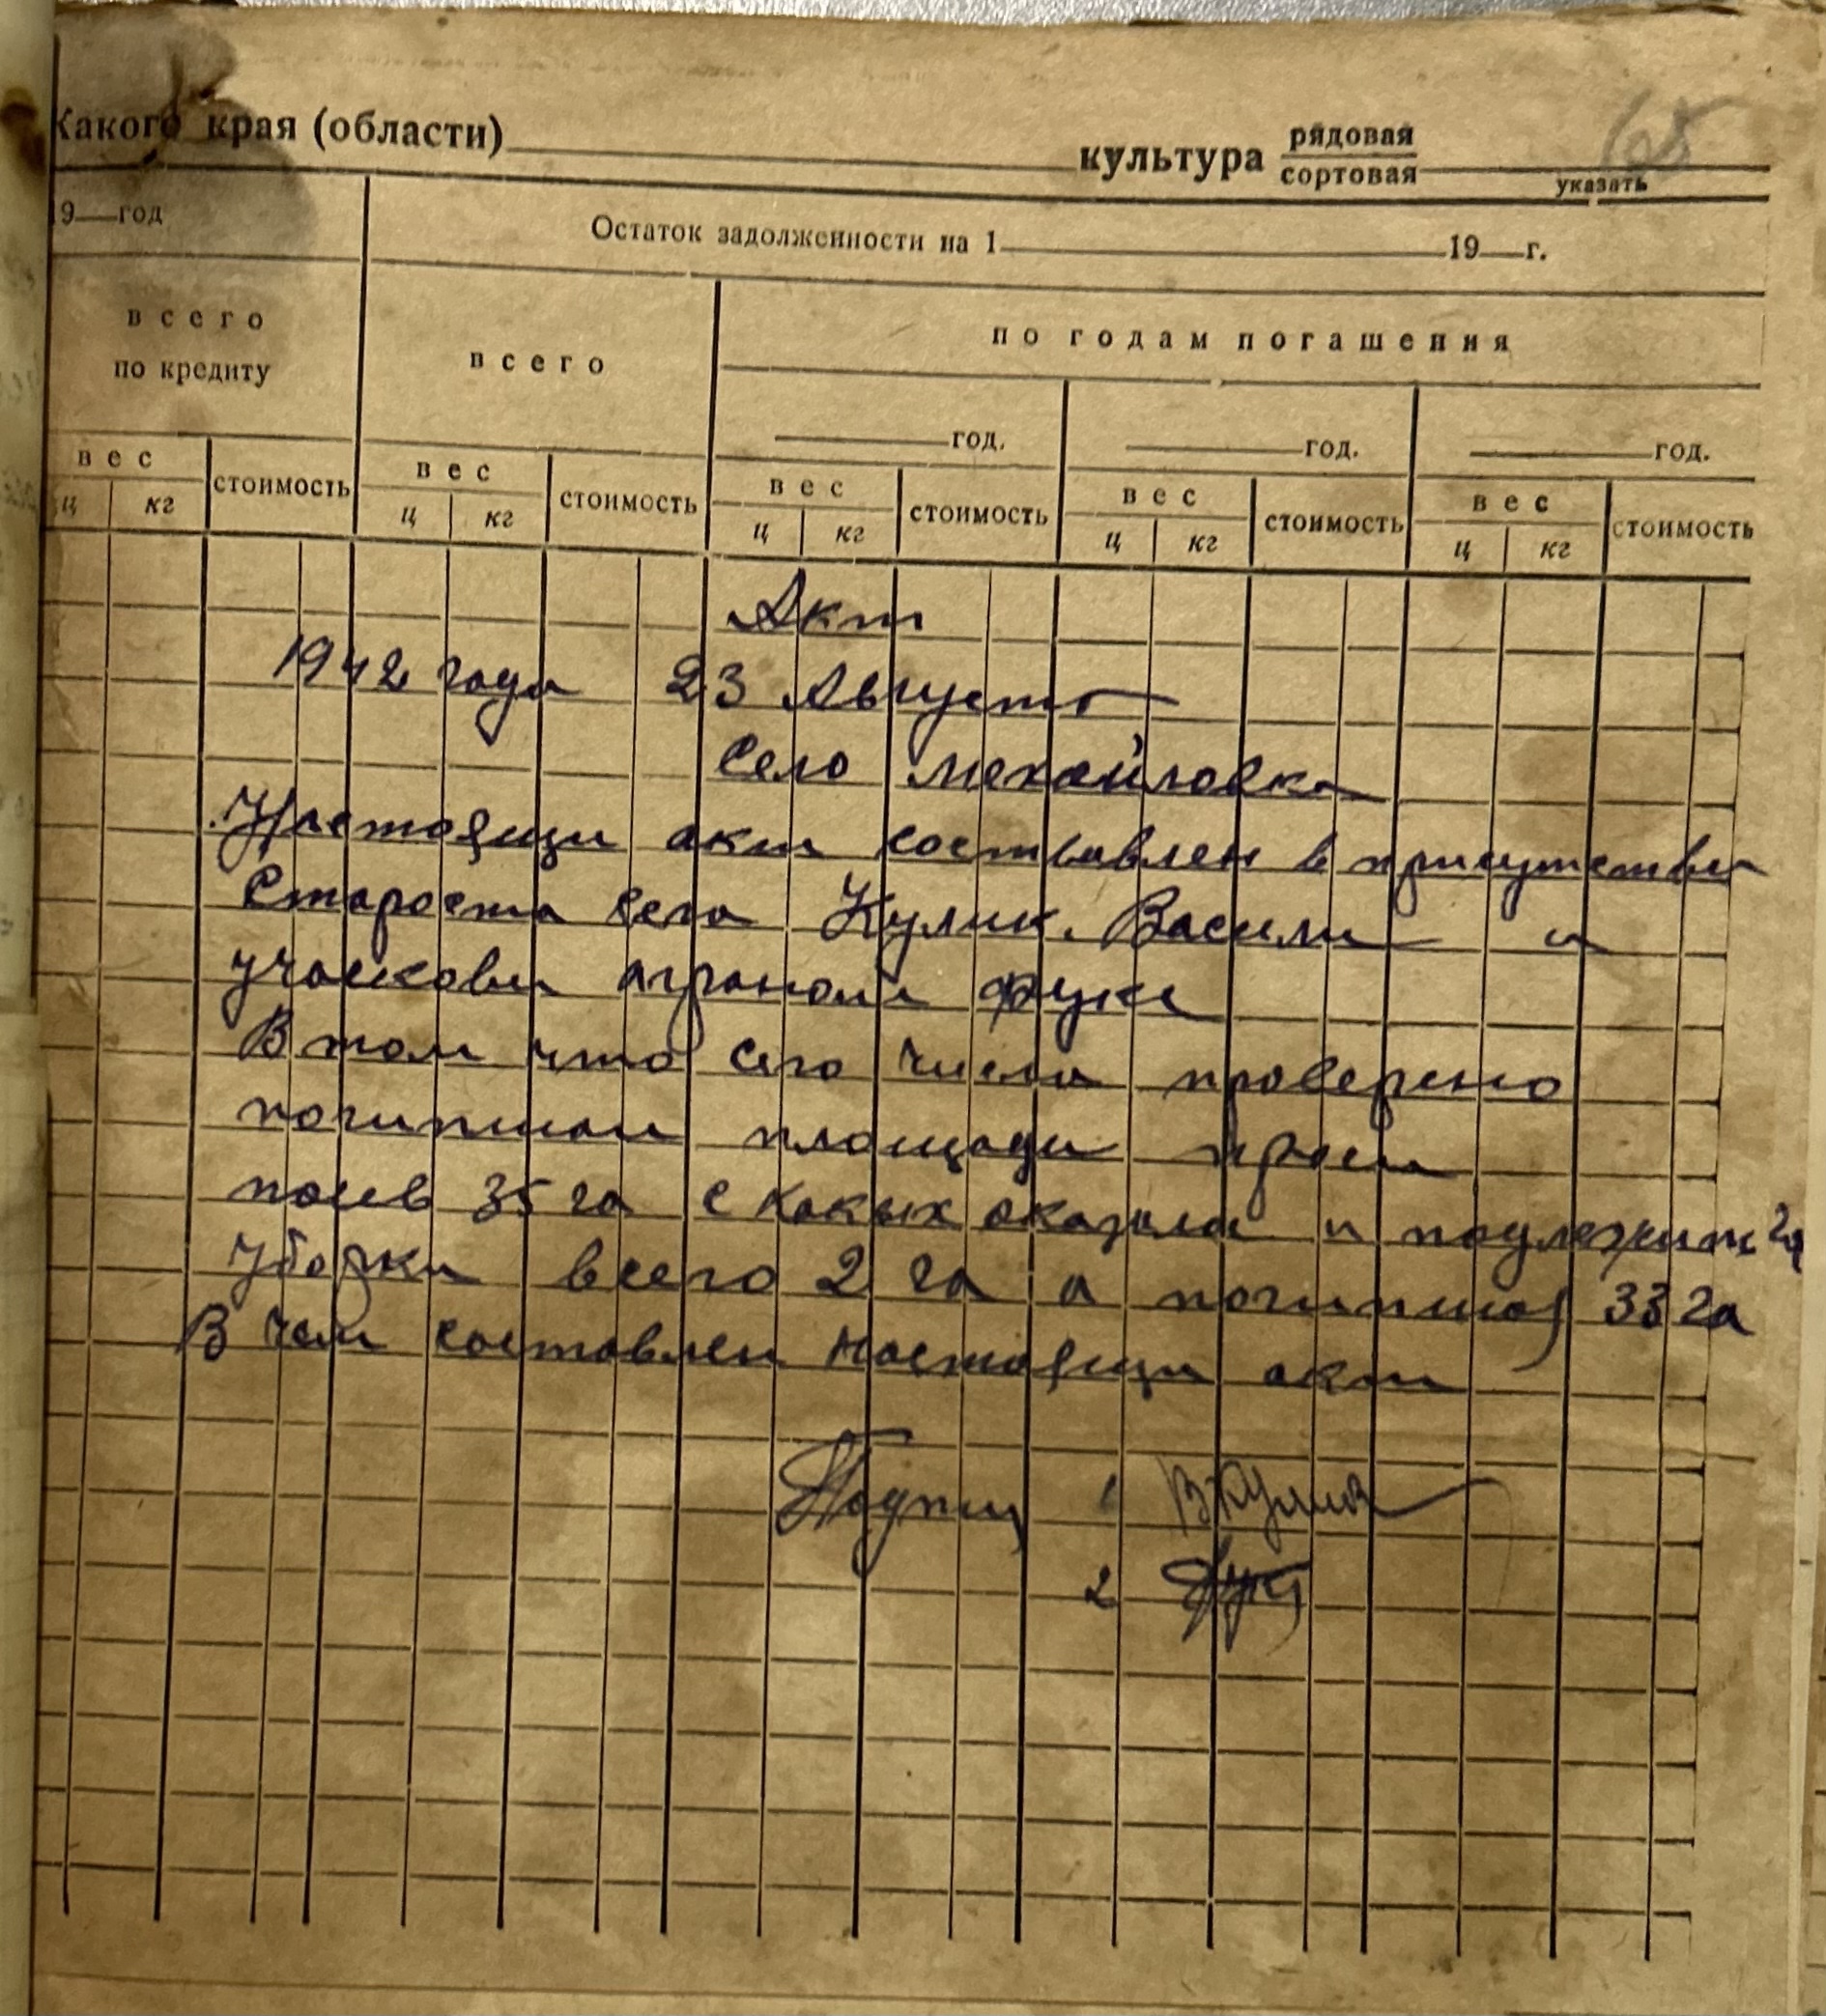 Какого края (области) культура рядовая
сортовая
указать
68
19 год Остаток задолженности на 1 19 г.
всего по годам погашения
по кредиту всего
год. год. год.
вес стоимость вес стоимость вес стоимость вес стоимость вес стоимость
ц кг ц кг ц кг ц кг ц кг
Акт
1942 года 23 Августа
Село Михайловка
Настоящи акт составлен в присутстви
Староста села Кулик. Васили и
учаскови агроном Фуке
В том что сего числа проверено
погипшаи площади проса
посев 35 га с каких оказала и подлежит дл
уборки всего 2 га а погипшой 33 га
В чем составлен настоящи акт
Подпис 1 ВКулик
2